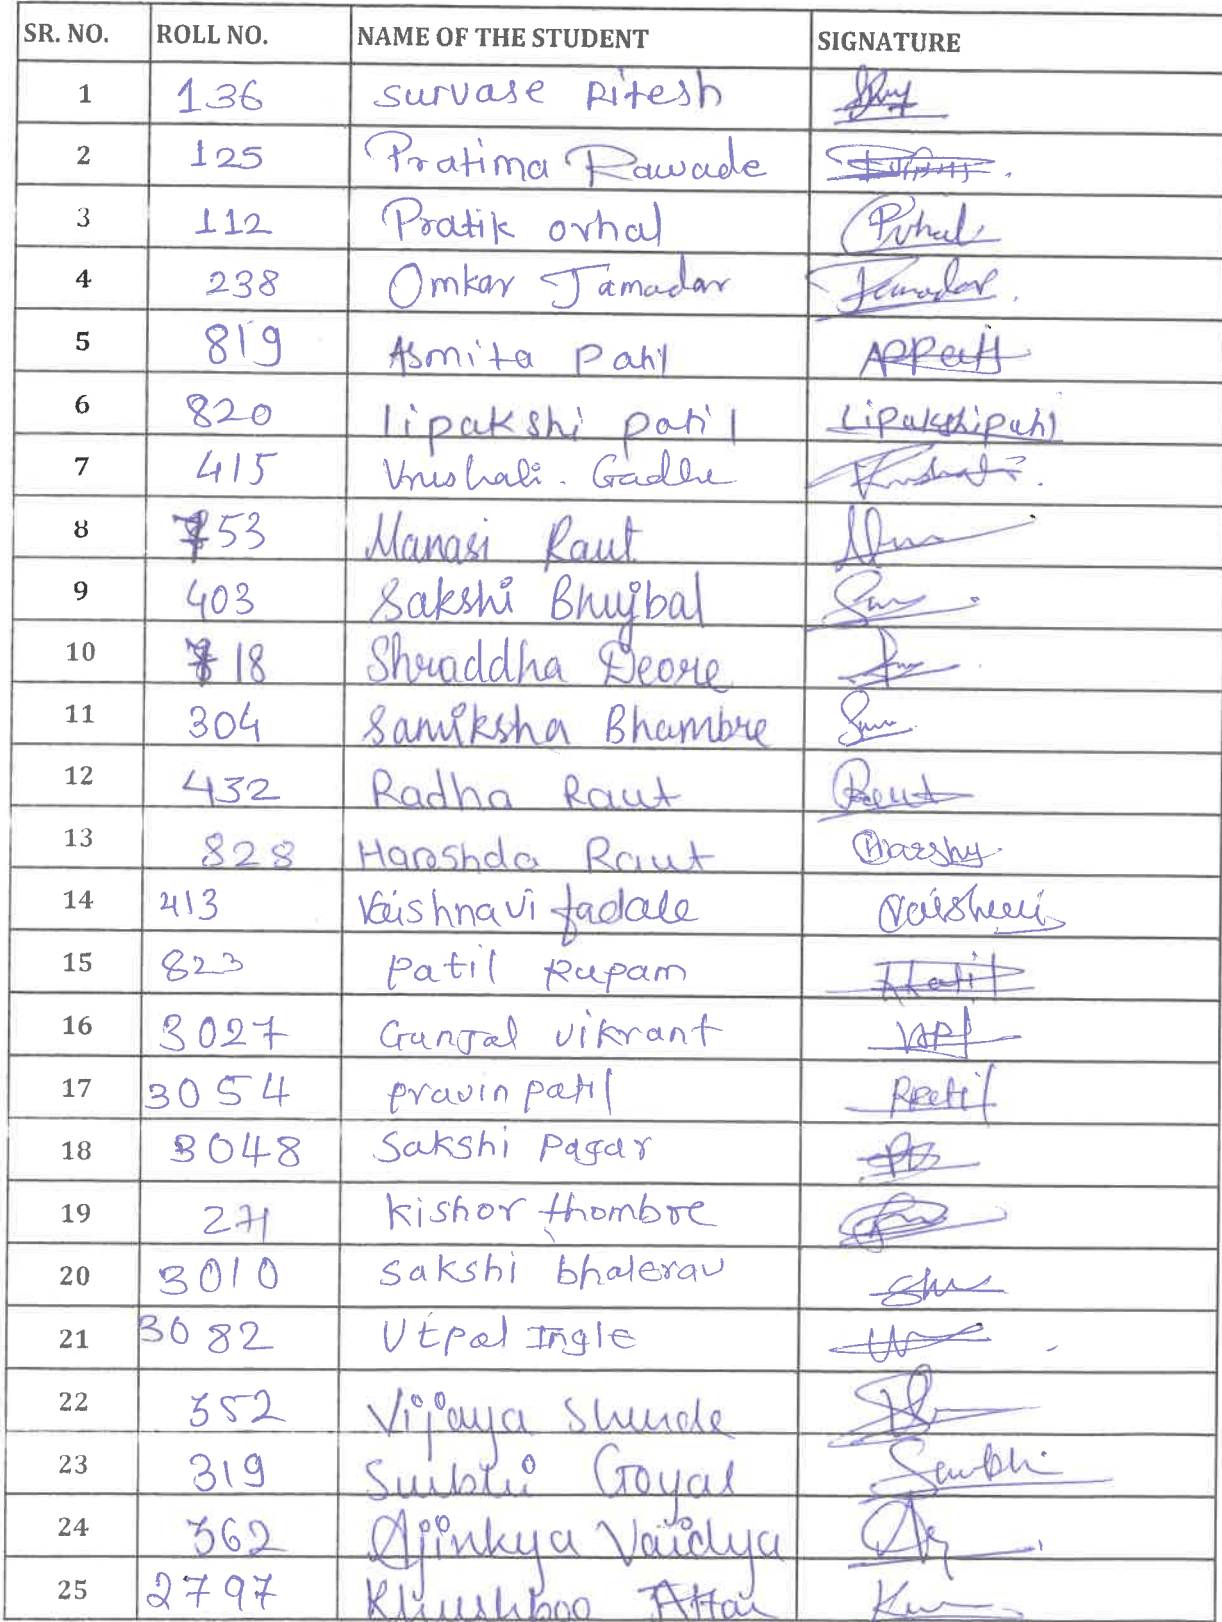 SR. NO. ROLL NO. NAME OF THE STUDENT SIGNATURE
1 136 survase Ritesh
2 125 Pratima Rawade
3 112 Pratik orhal Orhal
4 238 Omkar Jamadar Jamadar.
5 819 Asmita Patil APPatil
6 820 lipakshi patil Lipakshipatil
7 415 Vrushali. Gadhe Vrushali.
8 753 Manasi Raut
9 403 Sakshi Bhujbal
10 718 Shraddha Deore
11 304 Samiksha Bhambre
12 432 Radha Raut Raut
13 828 Harshda Raut
14 413 Vaishnavi fadale
15 823 patil Rupam
16 3027 Gunjal vikrant
17 3054 pravin patil RPatil
18 3048 Sakshi pagar
19 271 kishor thombre
20 3010 sakshi bhalerav
21 3082 Utpal Ingle
22 352 Vijaya Shinde
23 319 Surbhi Goyal Surbhi
24 362 Ajinkya Vaidya
25 2797 Khushboo Attar